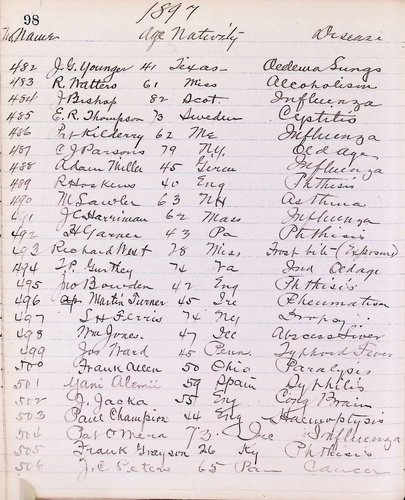 98
1897
No Names Age Nativity Disease
482 J.G. Younger 41 Texas Oedema Lungs
483 R. Watters 61 Miss Alcoholism
484 J Bishop 82 Scot Influenza
485 E.R. Thompson 73 Sweden Cystitis
486 Pat Kilderry 62 Me Influenza
487 C J Parsons 79 N.Y. Old Age
488 Adam Miller 45 Influenza
489 R Hoskins 40 Eng Phthisis
490 M Lawler 63 NH Asthma
491 J C Harriman 62 Mass Influenza
492 H Garner 43 Pa Phthisis
493 Richard West 28 Miss Frost bite (Exposure)
494 T.P. Gurthey 74 Va Ind Old age
495 Jno Bowden 42 Eng Phthisis
496 Martin Turner 45 Ire Rheumatism
497 S H Ferris 74 Ny Dropsy
498 Wm Jones. 47 Ill Abscess Liver
499 Jas Ward 45 Penn. Typhoid Fever
500 Frank Allen 50 Ohio Paralysis
501 Yani Alemii 59 Spain Syphilis
502 J. Jacka 55 Eng Cong Brain
503 Paul Champion 44 Eng Haemoptysis
504 Pat O'Mera 73. Ire Influenza
505 Frank Grayson 26 Ky Phthisis
506 J.C. Peters 65 Pa Cancer